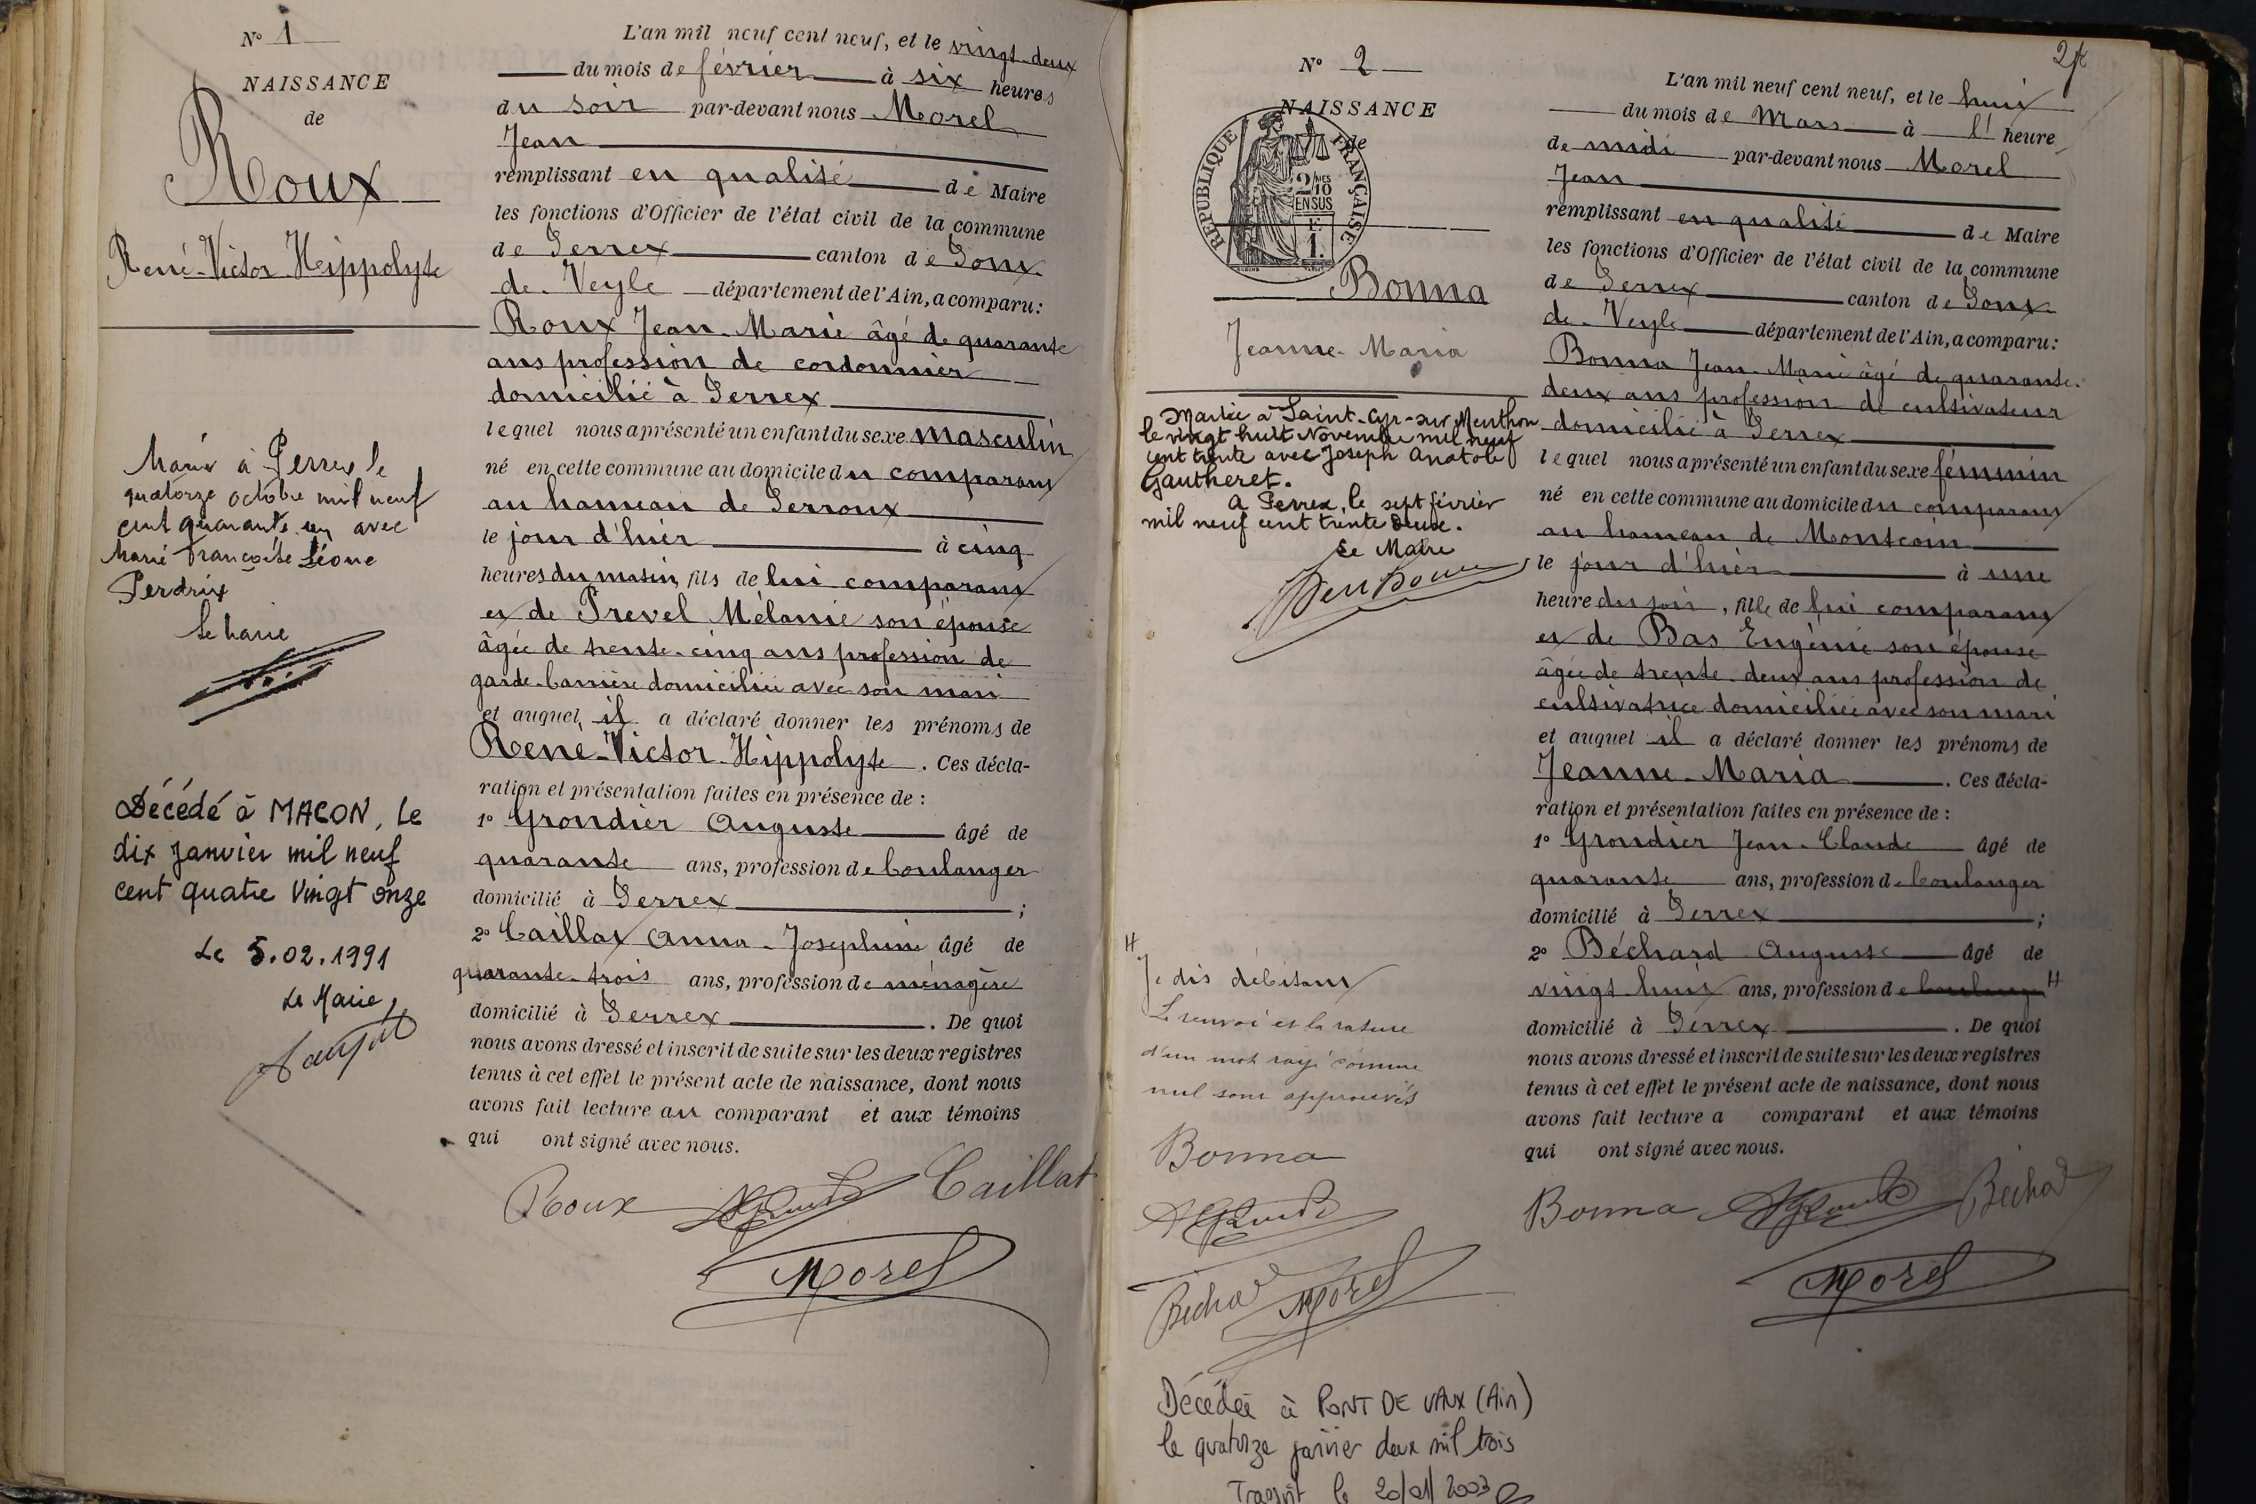 N° 1
NAISSANCE
de
Roux
René-Victor-Hippolyte
Marié à Perrex le
quatorze octobre mil neuf
cent quarante un avec
Marie Françoise Léone
Perdrix
Le Maire
Décédé à MACON, Le
dix janvier mil neuf
cent quatre vingt onze
Le 5.02.1991
Le Maire,
L'an mil neuf cent neuf, et le vingt-deux
du mois de février à six heures
du soir par-devant nous Morel
Jean
remplissant en qualité de Maire
les fonctions d'Officier de l'état civil de la commune
de Perrex canton de Pont-
de-Veyle département de l'Ain, a comparu:
Roux Jean-Marie âgé de quarante
ans profession de cordonnier
domicilié à Perrex
lequel nous a présenté un enfant du sexe masculin
né en cette commune au domicile du comparant
au hameau de Perroux
le jour d'hier à cinq
heures du matin, fils de lui comparant
et de Prevel Mélanie son épouse
âgée de trente-cinq ans profession de
garde-barrière domiciliée avec son mari
et auquel il a déclaré donner les prénoms de
René-Victor-Hippolyte. Ces décla-
ration et présentation faites en présence de :
1° Grondier Auguste âgé de
quarante ans, profession de boulanger
domicilié à Perrex ;
2° Caillat Anna-Joséphine âgé de
quarante-trois ans, profession de ménagère
domicilié à Perrex. De quoi
nous avons dressé et inscrit de suite sur les deux registres
tenus à cet effet le présent acte de naissance, dont nous
avons fait lecture au comparant et aux témoins
qui ont signé avec nous.
Roux Caillat
Morel
N° 2
NAISSANCE
de
RÉPUBLIQUE FRANÇAISE
2/10MES
EN SUS
1F
Bonna
Jeanne-Maria
Mariée à Saint-Cyr-sur-Menthon
le vingt huit Novembre mil neuf
cent trente avec Joseph Anatole
Gautheret.
A Perrex, le sept février
mil neuf cent trente deux.
Le Maire
H
Je dis débitant
Le renvoi et la rature
d'un mot rayé comme
nul sont approuvés
Bonna
Béchard Morel
Décédée à PONT DE VAUX (Ain)
le quatorze janvier deux mil trois
Transcrit le 20/01/2003
L'an mil neuf cent neuf, et le huit
du mois de Mars à l' heure
de midi par-devant nous Morel
Jean
remplissant en qualité de Maire
les fonctions d'Officier de l'état civil de la commune
de Perrex canton de Pont-
de-Veyle département de l'Ain, a comparu:
Bonna Jean-Marie âgé de quarante-
deux ans profession de cultivateur
domicilié à Perrex
lequel nous a présenté un enfant du sexe féminin
né en cette commune au domicile du comparant
au hameau de Montcoin
le jour d'hier à une
heure du soir, fille de lui comparant
et de Bas Eugénie son épouse
âgée de trente-deux ans profession de
cultivatrice domiciliée avec son mari
et auquel il a déclaré donner les prénoms de
Jeanne-Maria. Ces décla-
ration et présentation faites en présence de :
1° Grondier Jean-Claude âgé de
quarante ans, profession de boulanger
domicilié à Perrex ;
2° Béchard Auguste âgé de
vingt-huit ans, profession de boulanger H
domicilié à Perrex. De quoi
nous avons dressé et inscrit de suite sur les deux registres
tenus à cet effet le présent acte de naissance, dont nous
avons fait lecture a comparant et aux témoins
qui ont signé avec nous.
Bonna Béchard
Morel